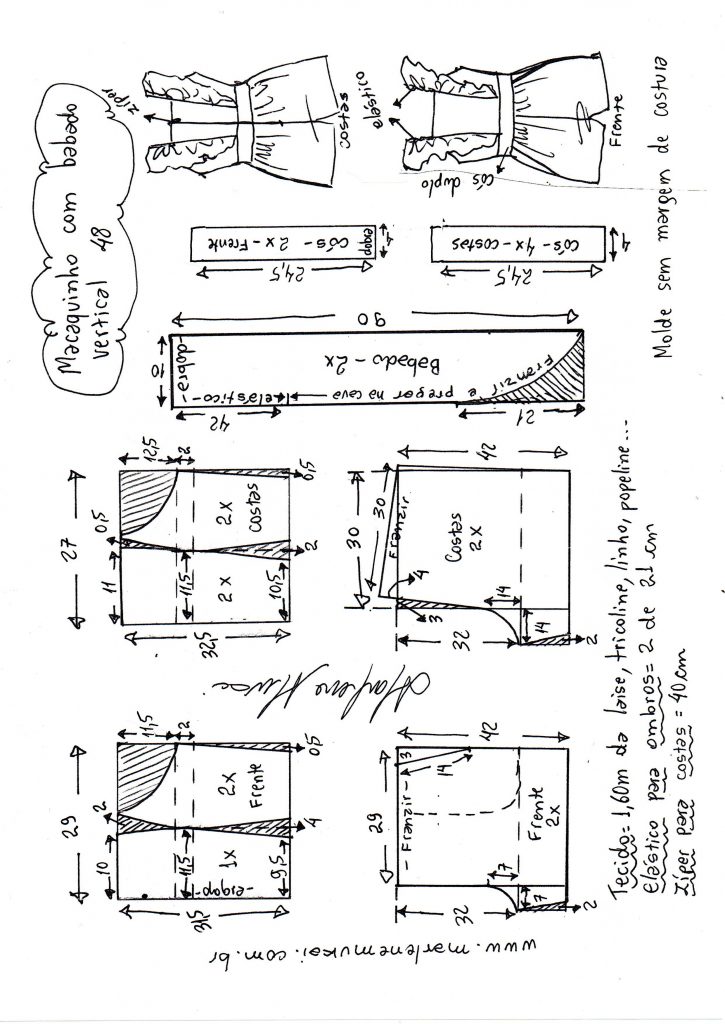 Macaquinho com babado
vertical 48
zíper
costas
elástico
cós duplo
Frente
Molde sem margem de costura
24,5
cós - 2x - Frente
dobra
4
24,5
cós - 4x - costas
4
90
Babado - 2x
10
- dobra -
elástico
pregar na cava
e
Franzir
42
21
27
12,5
2
0,5
0,5
11
11,5
10,5
2
32,5
2x
2x
costas
42
30
30
Franzir
4
3
Costas
2x
32
14
14
2
29
11,5
2
2
0,5
10
11,5
9,5
4
31,5
1x
- dobra -
2x
Frente
42
29
- Franzir -
3
14
32
7
7
2
Frente
2x
Tecido = 1,60m da laise, tricoline, linho, popeline...
elástico para ombros = 2 de 21 cm
zíper para costas = 40 cm
www.marlenemukai.com.br
Marlene Mukai